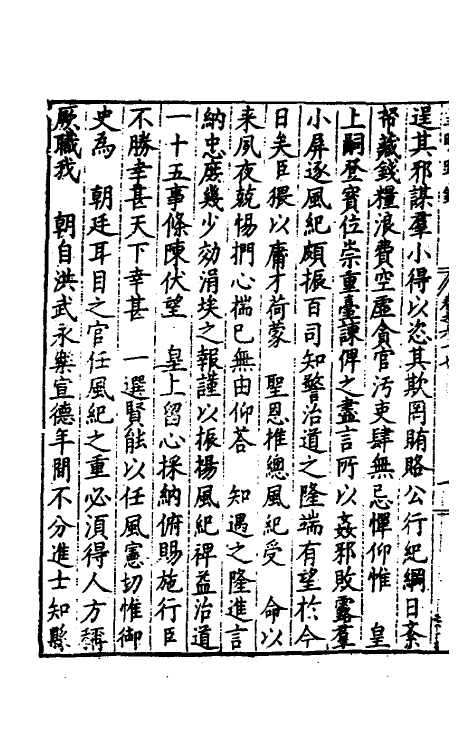 逞其邪謀羣小得以恣其欺罔賄賂公行紀綱日紊
帑藏錢糧浪費空虛貪官汚吏肆無忌憚仰惟　皇
上嗣登寳位崇重臺諫俾之盡言所以姦邪敗露羣
小屏逐風紀頗振百司知警治道之隆端有望於今
日矣臣猥以庸才荷蒙　聖恩推總風紀受　命以
来夙夜兢惕捫心揣已無由仰荅　知遇之隆進言
納忠庶幾少効涓埃之報謹以振揚風紀裨益治道
一十五事條陳伏望　皇上留心採納俯賜施行臣
不勝幸甚天下幸甚　一選賢能以任風憲切惟御
史為　朝廷耳目之官任風紀之重必湏得人方稱
厥職我　朝自洪武永樂宣德年間不分進士知縣